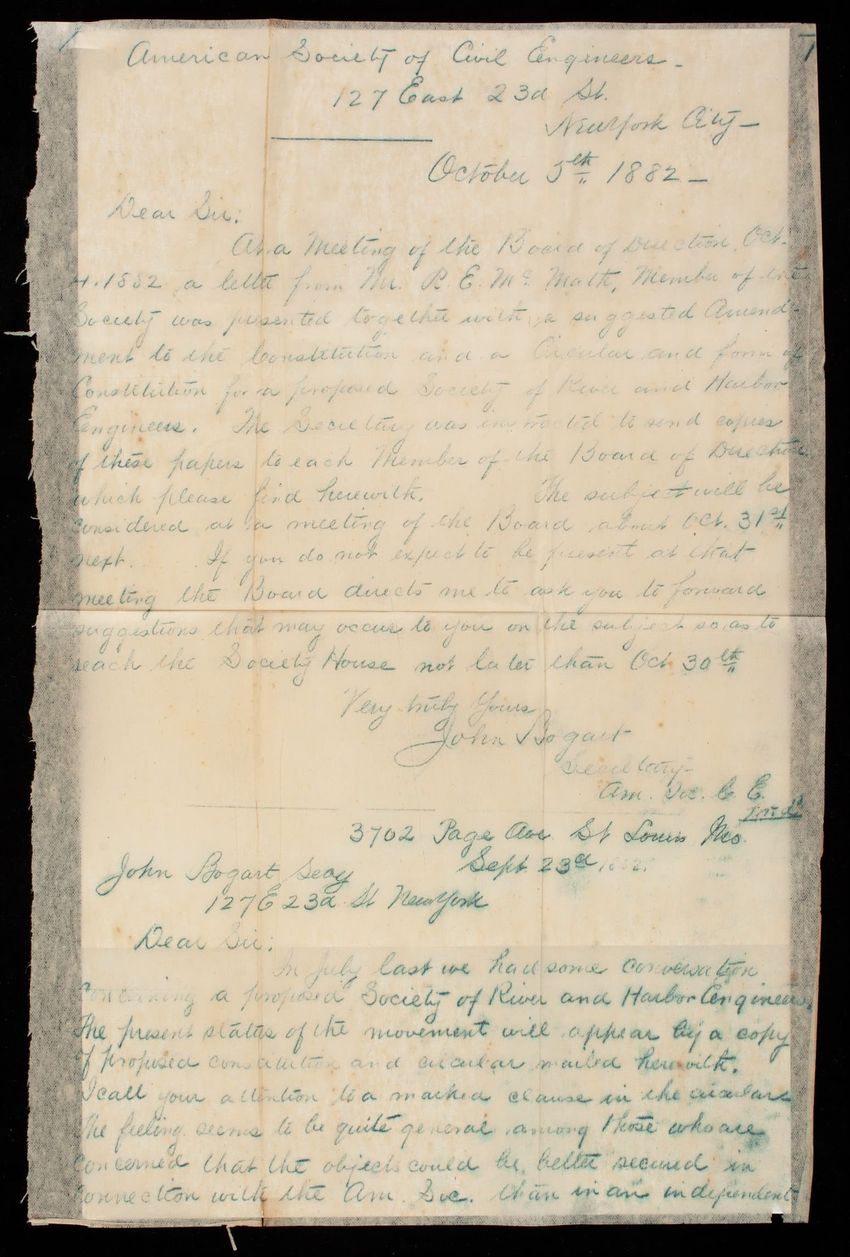 American Society of Civil Engineers -
127 East 23d St.
New York City -
October 5th 1882 -
Dear Sir:
At a Meeting of the Board of Direction, Oct.
4. 1882 a letter from Mr. R. E. Mc Math, Member of the
Society was presented together with a suggested Amend-
ment to the Constitution and a Circular and form of
Constitution for a proposed Society of River and Harbor
Engineers. The Secretary was instructed to send copies
of these papers to each Member of the Board of Direction
which please find herewith. The subject will be
considered at a meeting of the Board about Oct. 31st
next. If you do not expect to be present at that
meeting the Board directs me to ask you to forward
suggestions that may occur to you on the subject so as to
reach the Society House not later than Oct 30th
Very truly Yours
John Bogart
Secretary
Am. Soc. C E.
3702 Page Ave St Louis Mo.
Sept 23d 1882.
John Bogart Secy
127 E 23d St New York
Dear Sir:
In July last we had some conversation
concerning a proposed Society of River and Harbor Engineers.
The present status of the movement will appear by a copy
of proposed constitution and circular mailed herewith.
I call your attention to a marked clause in the circular
The feeling seems to be quite general among those who are
concerned that the objects could be better secured in
connection with the Am. Soc. than in an independent